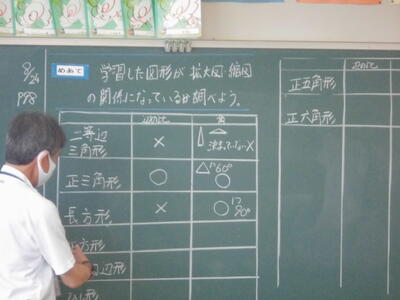 8/24
P98
めあて
学習した図形が拡大図・縮図
の関係になっているか調べよう。
辺の比 角
二等辺
三角形 × 決まっていない×
正三角形 ○ 60° ○
長方形 × ○ 90°
方形
辺形
辺の比
正五角形
正六角形